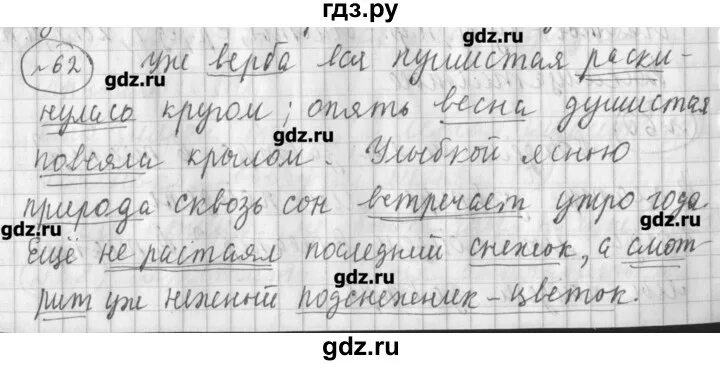 гдз.ру
№62 уже верба вся пушистая раски-
gdz.ru
gdz.ru
нулась кругом; опять весна душистая
gdz.ru
повеяла крылом. Улыбкой ясною
природа сквозь сон встречает утро года
gdz.ru
gdz.ru
Ещё не растаял последний снежок, а смот-
gdz.ru
рит уж нежный подснежник-цветок.
gdz.ru